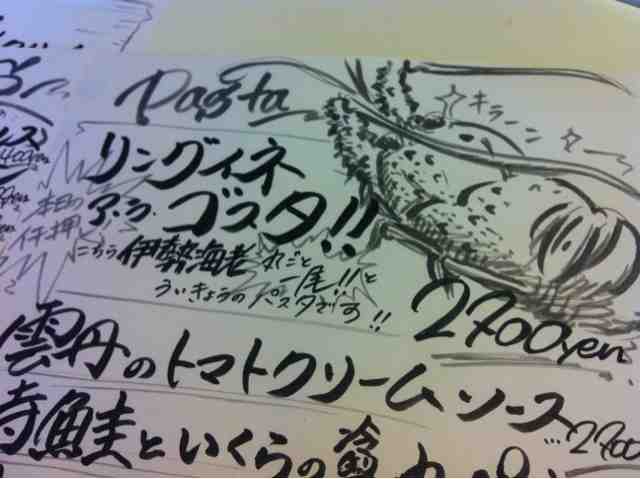 Pasta
キラーン
リングイネ
ア・ラ・ゴスタ!!
本日の
イチ押
こちら伊勢海老丸ごと
一尾!!と
ういきょうのパスタです!!
2700yen
雲丹のトマトクリームソース
2700
寺鮭といくらの冷製カペ